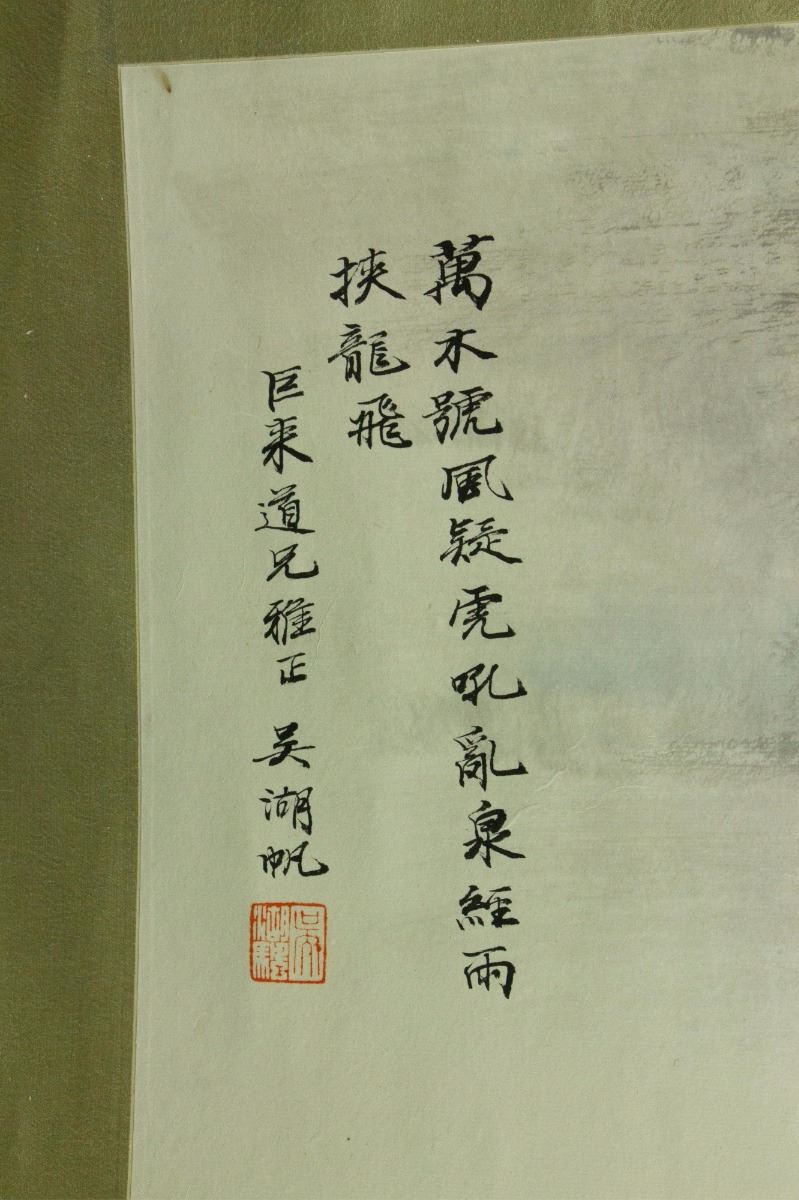 萬木號風疑虎吼亂泉經雨
挾龍飛
巨来道兄雅正 吳湖帆